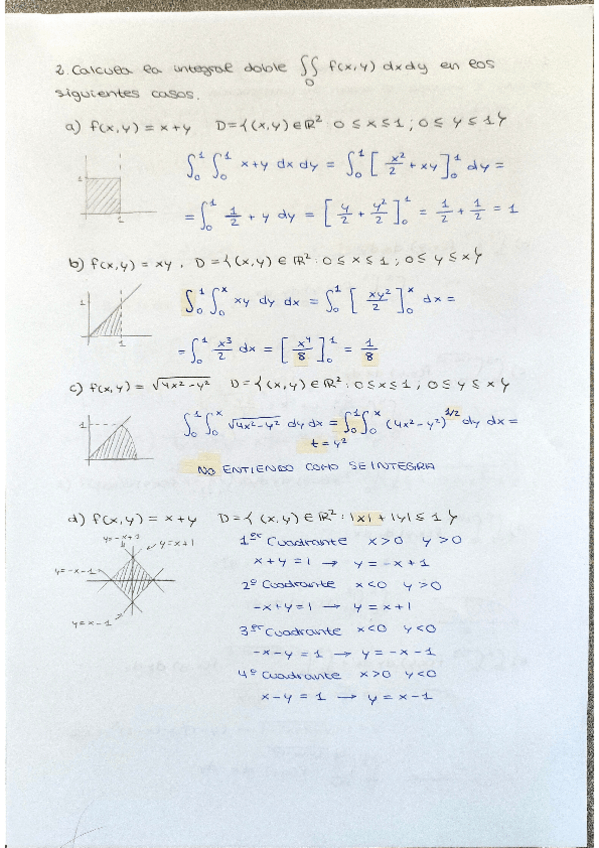 2. Calcula la integral doble ∬_D f(x,y) dxdy en los
siguientes casos.
a) f(x,y) = x+y D={(x,y) ∈ ℝ² : 0 ≤ x ≤ 1 ; 0 ≤ y ≤ 1}
∫₀¹ ∫₀¹ x+y dx dy = ∫₀¹ [x²/2 + xy]₀¹ dy =
1
1
= ∫₀¹ 1/2 + y dy = [y/2 + y²/2]₀¹ = 1/2 + 1/2 = 1
b) f(x,y) = xy . D={(x,y) ∈ ℝ² : 0 ≤ x ≤ 1 ; 0 ≤ y ≤ x}
∫₀¹ ∫₀ˣ xy dy dx = ∫₀¹ [xy²/2]₀ˣ dx =
1
1
= ∫₀¹ x³/2 dx = [x⁴/8]₀¹ = 1/8
c) f(x,y) = √(4x²-y²) D={(x,y) ∈ ℝ² : 0 ≤ x ≤ 1 , 0 ≤ y ≤ x}
∫₀¹ ∫₀ˣ √(4x²-y²) dy dx = ∫₀¹ ∫₀ˣ (4x²-y²)^1/2 dy dx =
1
t = y²
1
NO ENTIENDO COMO SE INTEGRA
d) f(x,y) = x+y D={(x,y) ∈ ℝ² : |x| + |y| ≤ 1}
y=-x+1
y=x+1
1er Cuadrante x>0 y>0
x+y = 1 → y = -x+1
y=-x-1
2º Cuadrante x<0 y>0
-x+y = 1 → y = x+1
y=x-1
3er Cuadrante x<0 y<0
-x-y = 1 → y = -x-1
4º Cuadrante x>0 y<0
x-y = 1 → y = x-1